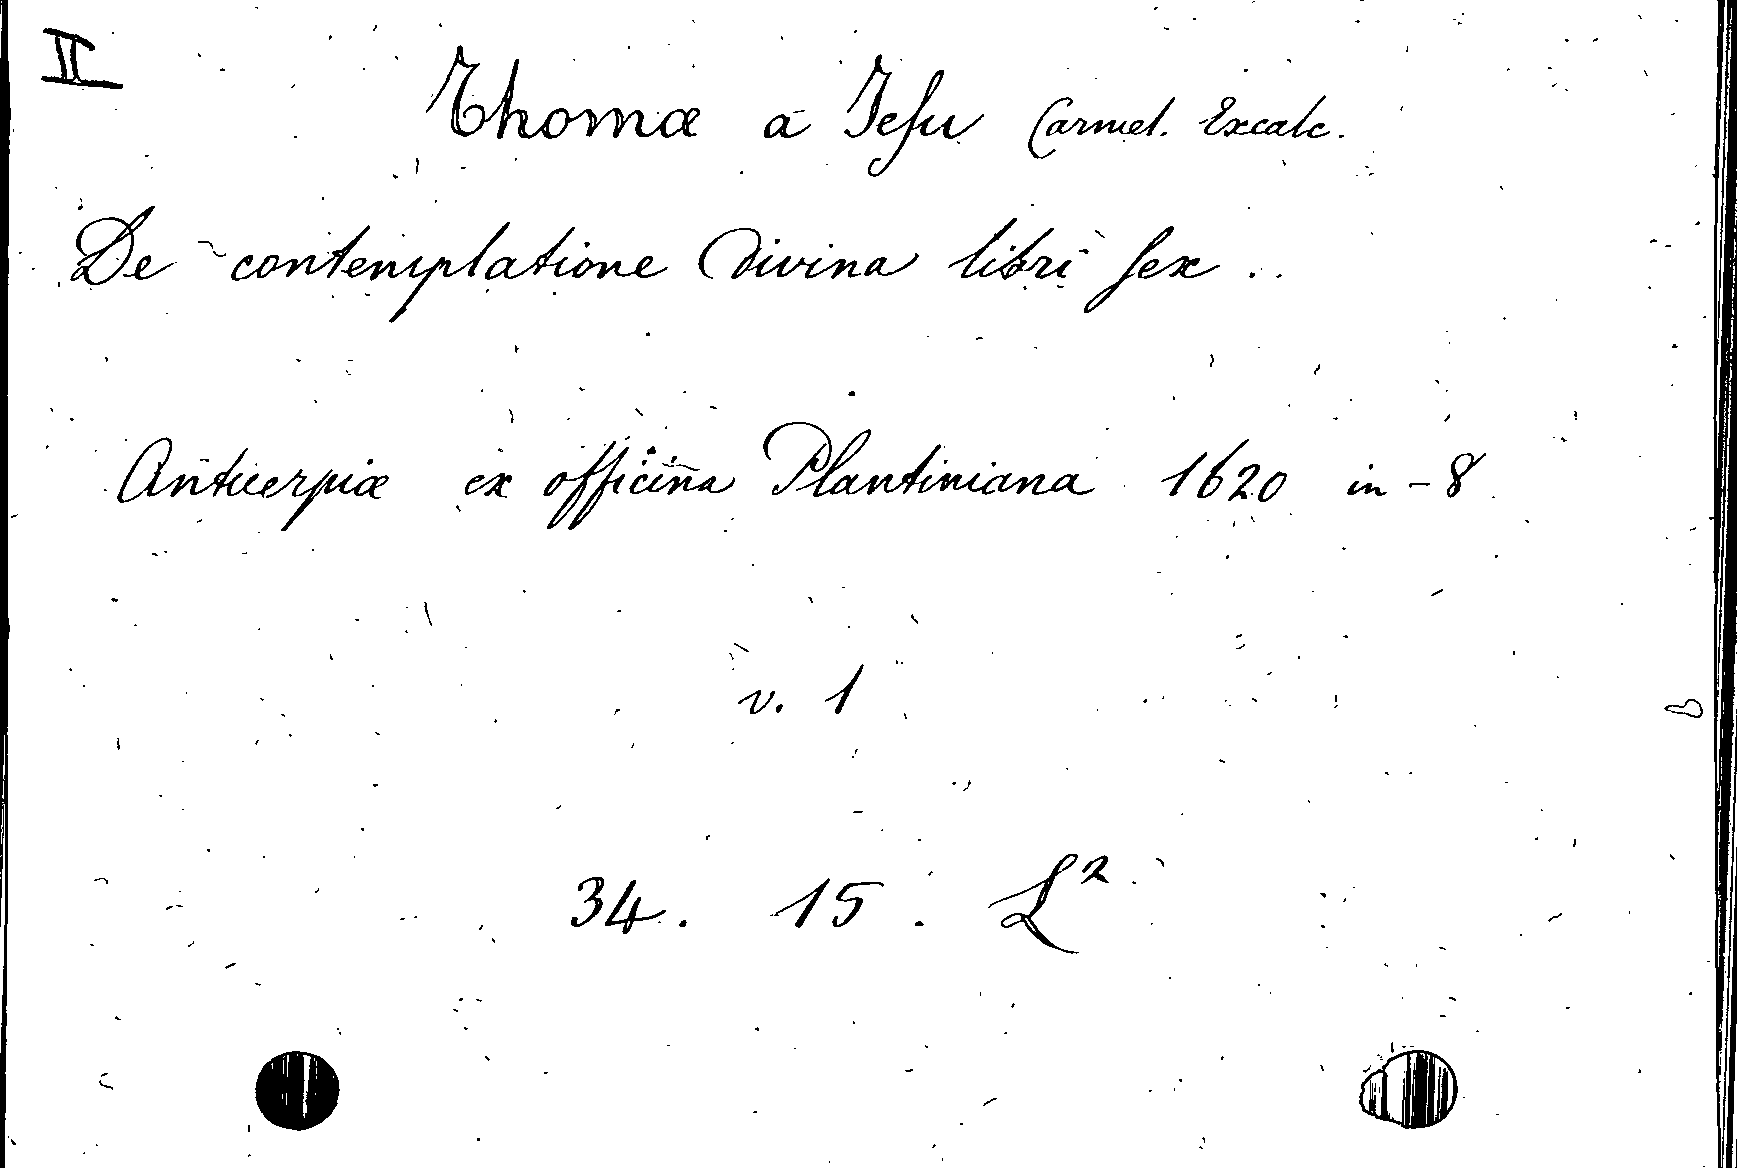 II
Thomæ a Iesu Carmel. Excalc.
De contemplatione Divina libri sex ..
Antuerpiæ ex officina Plantiniana 1620 in-8
v. 1
34. 15. L²